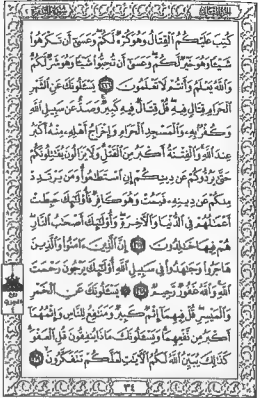 الجزء الثاني سورة البقرة
كُتِبَ عَلَيْكُمُ ٱلْقِتَالُ وَهُوَ كُرْهٌ لَّكُمْ وَعَسَىٰٓ أَن تَكْرَهُوا۟
شَيْـًٔا وَهُوَ خَيْرٌ لَّكُمْ وَعَسَىٰٓ أَن تُحِبُّوا۟ شَيْـًٔا وَهُوَ شَرٌّ لَّكُمْ
وَٱللَّهُ يَعْلَمُ وَأَنتُمْ لَا تَعْلَمُونَ ٢١٦ يَسْـَٔلُونَكَ عَنِ ٱلشَّهْرِ
ٱلْحَرَامِ قِتَالٍ فِيهِ قُلْ قِتَالٌ فِيهِ كَبِيرٌ وَصَدٌّ عَن سَبِيلِ ٱللَّهِ
وَكُفْرٌۢ بِهِۦ وَٱلْمَسْجِدِ ٱلْحَرَامِ وَإِخْرَاجُ أَهْلِهِۦ مِنْهُ أَكْبَرُ
عِندَ ٱللَّهِ وَٱلْفِتْنَةُ أَكْبَرُ مِنَ ٱلْقَتْلِ وَلَا يَزَالُونَ يُقَـٰتِلُونَكُمْ
حَتَّىٰ يَرُدُّوكُمْ عَن دِينِكُمْ إِنِ ٱسْتَطَـٰعُوا۟ وَمَن يَرْتَدِدْ
مِنكُمْ عَن دِينِهِۦ فَيَمُتْ وَهُوَ كَافِرٌ فَأُو۟لَـٰٓئِكَ حَبِطَتْ
أَعْمَـٰلُهُمْ فِى ٱلدُّنْيَا وَٱلْـَٔاخِرَةِ وَأُو۟لَـٰٓئِكَ أَصْحَـٰبُ ٱلنَّارِ
هُمْ فِيهَا خَـٰلِدُونَ ٢١٧ إِنَّ ٱلَّذِينَ ءَامَنُوا۟ وَٱلَّذِينَ
هَاجَرُوا۟ وَجَـٰهَدُوا۟ فِى سَبِيلِ ٱللَّهِ أُو۟لَـٰٓئِكَ يَرْجُونَ رَحْمَتَ
ٱللَّهِ وَٱللَّهُ غَفُورٌ رَّحِيمٌ ٢١٨ ۞ يَسْـَٔلُونَكَ عَنِ ٱلْخَمْرِ
وَٱلْمَيْسِرِ قُلْ فِيهِمَآ إِثْمٌ كَبِيرٌ وَمَنَـٰفِعُ لِلنَّاسِ وَإِثْمُهُمَآ
أَكْبَرُ مِن نَّفْعِهِمَا وَيَسْـَٔلُونَكَ مَاذَا يُنفِقُونَ قُلِ ٱلْعَفْوَ
كَذَٰلِكَ يُبَيِّنُ ٱللَّهُ لَكُمُ ٱلْـَٔايَـٰتِ لَعَلَّكُمْ تَتَفَكَّرُونَ ٢١٩
٣٤